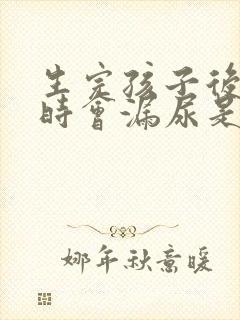 生完孩子後
時會漏尿是
娜年秋意暖